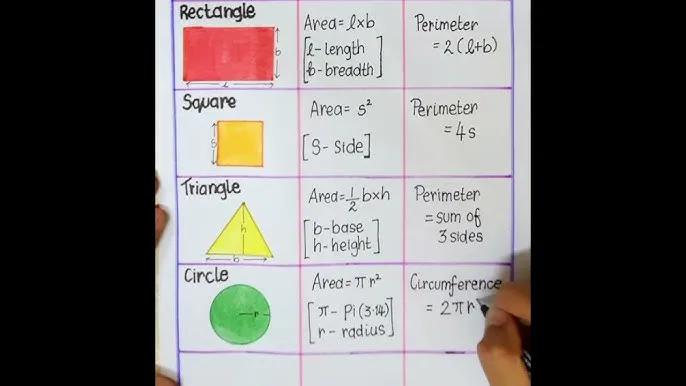 Rectangle
Area= l×b
[l-length
b-breadth]
Perimeter
= 2(l+b)
b
l
Square
Area= s²
[S- side]
Perimeter
= 4s
S
Triangle
Area=½ b×h
[b-base
h-height]
Perimeter
=sum of
3 sides
h
b
Circle
Area= πr²
[π- Pi(3·14)
r- radius]
Circumference
= 2πr
r